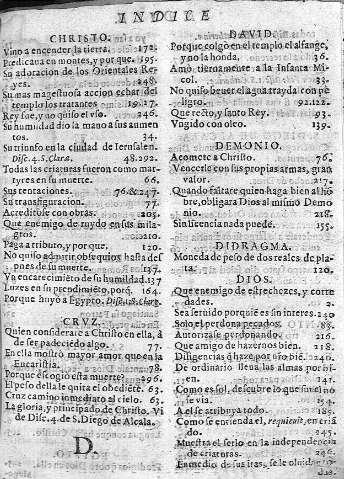 INDICE
CHRISTO.
Vino a encender la tierra. 172.
Predicaua en montes, y por que. 195.
Su adoracion de los Orientales Reyes. 248.
Su mas magestuosa accion echar del
templo los tratantes 19.27.
Rey fue, y no quiso el vso. 246.
Su humildad dio la mano a sus aumentos
34.
Su triunfo en la ciudad de Ierusalen.
Disc. 4. S. Clara. 48.292.
Todas las criaturas fueron como martyres
en su muerte. 66.
Sus tentaciones. 76.&247.
Su transfiguracion. 77.
Acreditole con obras. 205.
Que enemigo de ruydo en sus milagros.
210.
Paga a tributo, y por que. 120.
No quiso admitir obsequios hasta despues
de su muerte. 137.
Ya encarecimiẽto de su humildad. 137
Luzes en su prendimiẽto, por q̃. 164.
Porque huyò a Egypto. Disc. 1. S. Clara.
CRVZ.
Quien considerase a Christo en ella, à
de ser padeciẽdo algo. 77.
En ella mostrò mayor amor que en la
Eucaristia. 78.
Porque escogio esta muerte? 296.
El peso della le quita el obediẽte. 63.
Cruz camino inmediato al cielo. 63.
La gloria, y principado de Christo. Vi
de Disc. 4. de S. Diego de Alcala.
D.
DAVID.
Porque colgò en el templo el alfange,
y no la honda. 36.
Amò tiernamente a la Infanta Micol.
33.
No quiso beuer el agua trayda con peligro.
92.122.
Que recto, y santo Rey. 93.
Vngido con oleo. 139.
DEMONIO.
Acomete a Christo. 76.
Vencerle con sus propias armas, gran
valor. 217.
Quando faltare quien haga bien al hombre,
obligara Dios al mismo Demonio.
218.
Sin licencia nada puede. 155.
DIDRAGMA.
Moneda de peso de dos reales de plata.
120.
DIOS.
Que enemigo de estrechezes, y cortedades.
2.
Sea seruido porquiẽ es sin interes. 240
Solo el perdona pecados. 88.
Autorizase perdonando. 216.
Que amigo de hazernos bien. 218.
Diligencias q̃ haze por nr̃o biẽ. 240.
De ordinario lleua las almas por bien.
241.
Como es sol, descubre lo que sin el no
se via. 154.
A el se atribuya todo. 185.
Como se entienda el, requieuit, en criado.
245.
Muestra el serlo en la independencia
de criaturas. 246.
En medio de sus iras, se le oluidan